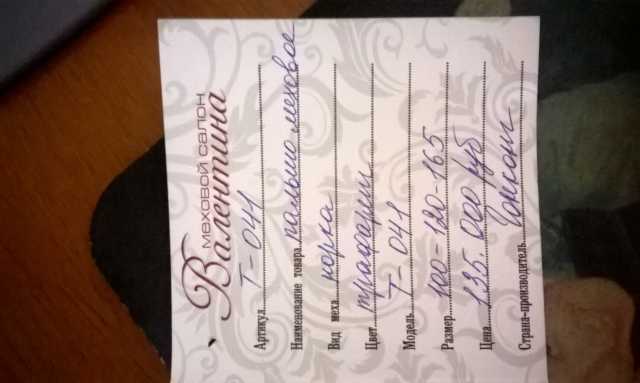 МЕХОВОЙ САЛОН
Валентина
Артикул Т-041
Наименование товара пальто меховое
Вид меха норка
Цвет графит
Модель Т-041
Размер 100-120-165
Цена 135.000 руб
Страна-производитель Гонконг